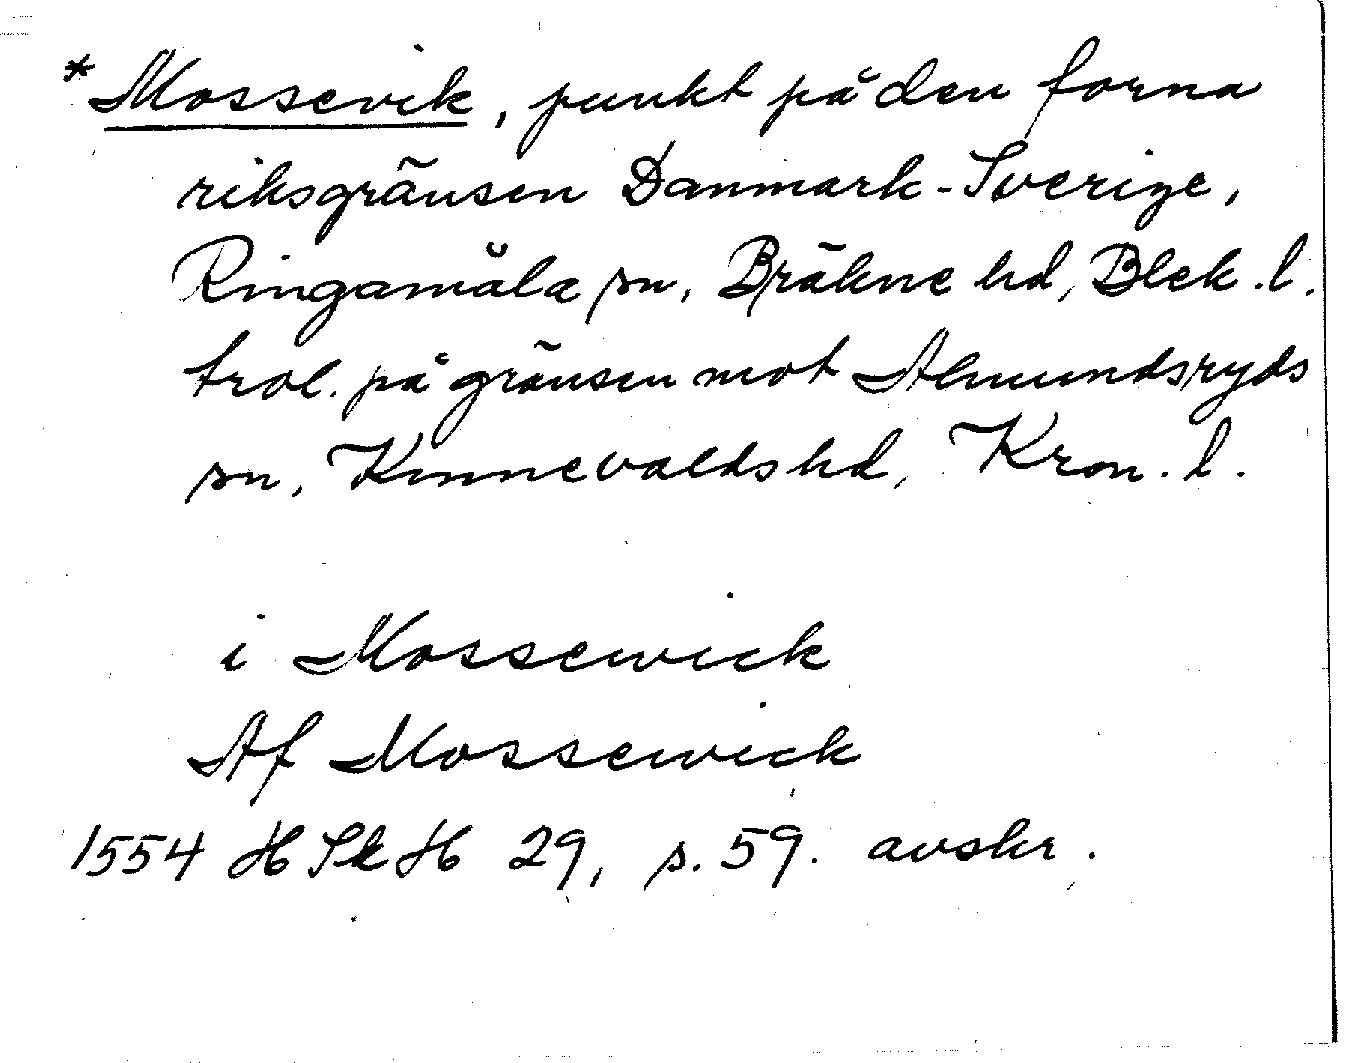 *Mossevik, punkt på den forna
riksgränsen Danmark-Sverige,
Ringamåla sn, Bräkne hd, Blek. l.
trol. på gränsen mot Almundsryds
sn, Kinnevalds hd, Kron. l.
i Mossewick
Af Mossewick
1554 HSkH 29, s. 59. avskr.